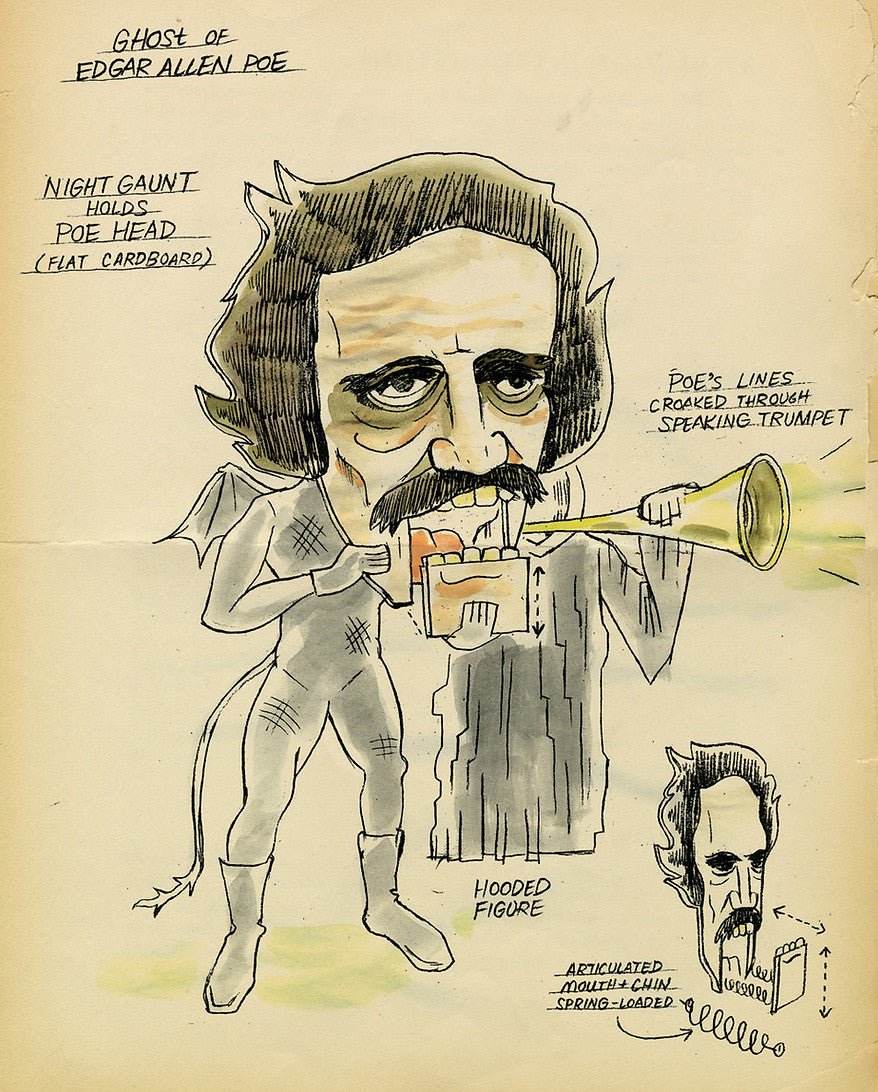 GHOSt OF
EDGAR ALLEN POE
NIGHT GAUNT
HOLDS
POE HEAD
(FLAT CARDBOARD)
POE'S LINES
CROAKED THROUGH
SPEAKING TRUMPET
HOODED
FIGURE
ARTICULATED
MOUTH + CHIN
SPRING-LOADED